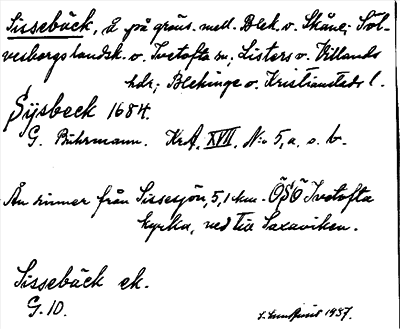 Sissebäck, å på gräns. mell. Blek. o. Skåne; Söl-
vesborgs landsk. o. Ivetofta sn; Listers o. Villands
hdr; Blekinge o. Kristianstads l.
Sÿsbeck 1684.
G. Buhrmann. KrA. XVII, No 5, a. o. b.
Ån rinner från Sissesjön, 5,1 km. ÖSÖ Ivetofta
kyrka, ned till Saxaviken.
Sissebäck ek.
G. 10.
1937.